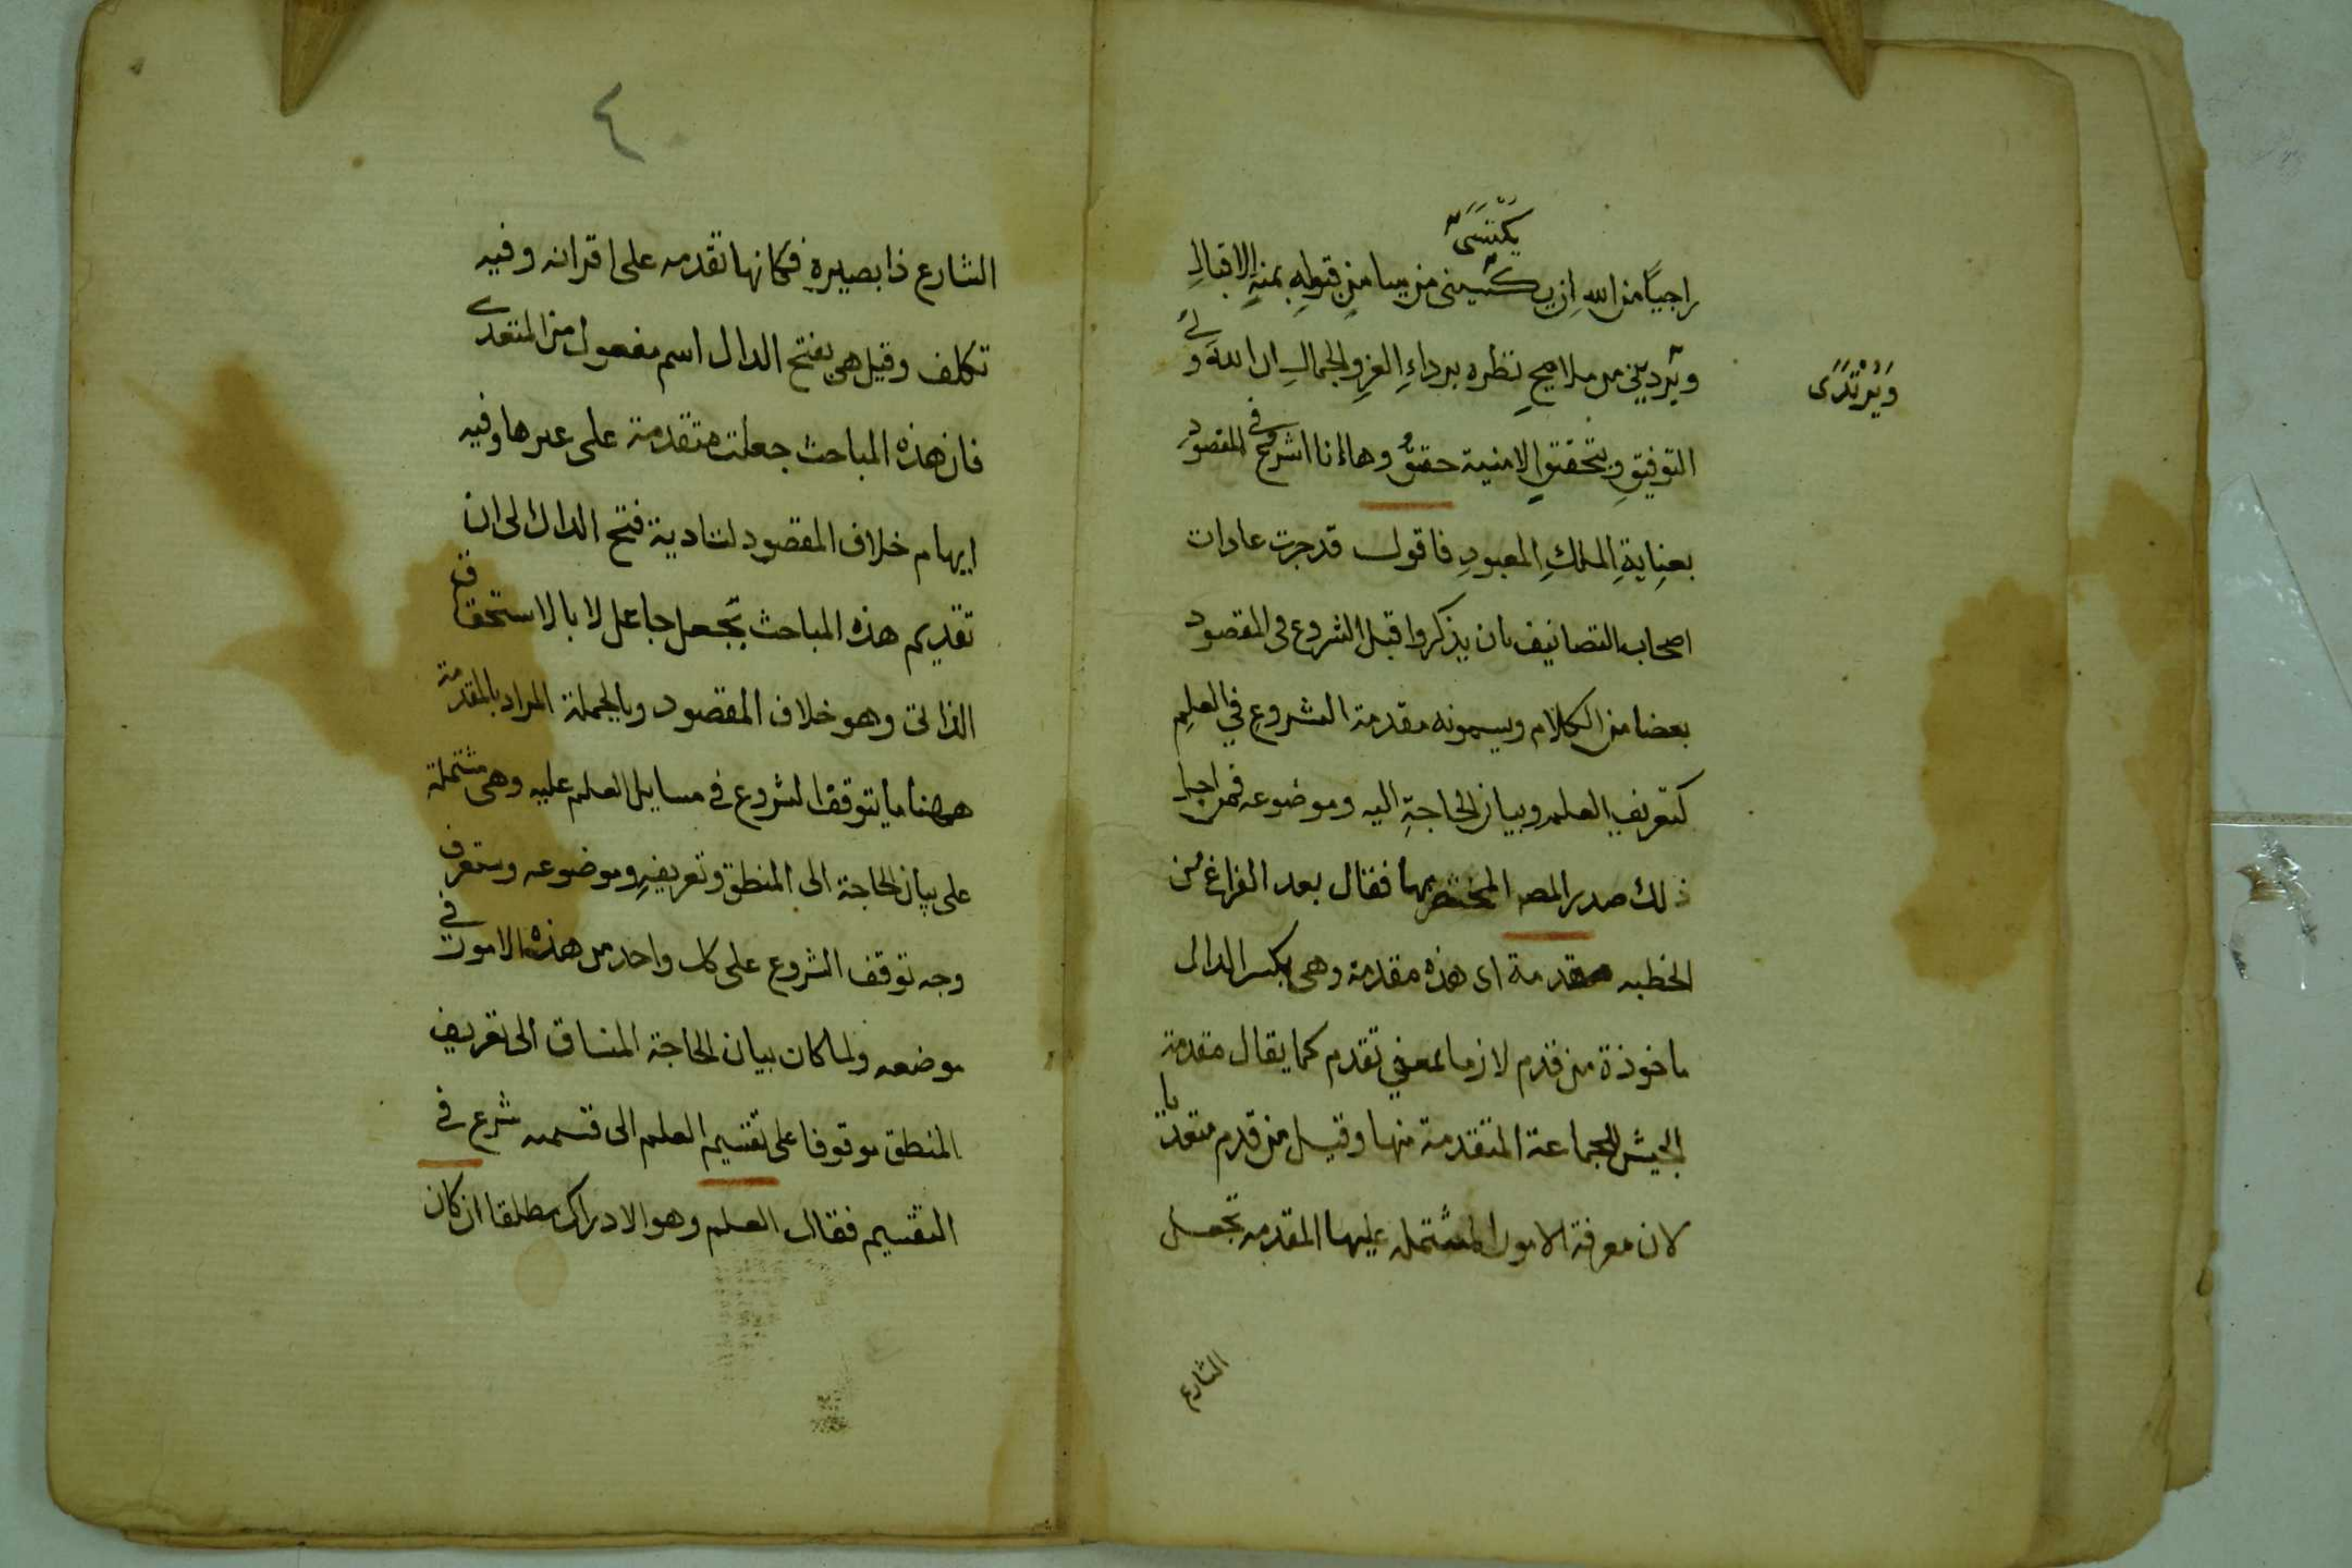 يكتسى
راجيا من الله ان يكسينى من ميامن قبوله بمنه الاقبال
ويردينى من ملامح نظره برداء العز والجمال ان الله ولى
ويرتدى
التوفيق وبتحقيق الامنية حقيق وها انا اشرع فى المقصود
بعناية الملك المعبود فاقول قد جرت عادات
اصحاب التصانيف بان يذكروا قبل الشروع فى المقصود
بعضا من الكلام ويسمونه مقدمة الشروع في العلم
كتعريف العلم وبيان الحاجة اليه وموضوعه فمن اجل
ذلك صدر المص المختصر بها فقال بعد الفراغ من
الخطبه مقدمة اى هذه مقدمة وهى بكسر الدال
ماخوذة من قدم لازما بمعنى تقدم كما يقال مقدمة
الجيش للجماعة المتقدمة منها وقيل من قدم متعديا
لان معرفة الامور المشتمله عليها المقدمه تجعل
الشارع
٤
الشارع ذا بصيرة فكانها تقدمه على اقرانه وفيه
تكلف وقيل هى بفتح الدال اسم مفعول من المتعدى
فان هذه المباحث جعلت متقدمة على غيرها وفيه
ايهام خلاف المقصود لتادية فتح الدال الى ان
تقديم هذه المباحث بجعل جاعل لا بالاستحقاق
الذاتى وهو خلاف المقصود وبالجملة المراد بالمقدمة
ههنا ما يتوقف الشروع فى مسايل العلم عليه وهى مشتملة
على بيان الحاجة الى المنطق وتعريفه وموضوعه وستعرف
وجه توقف الشروع على كل واحد من هذه الامور فى
موضعه ولما كان بيان الحاجة المنساق الى تعريف
المنطق موقوفا على تقسيم العلم الى قسميه شرع فى
التقسيم فقال العلم وهو الادراك مطلقا ان كان